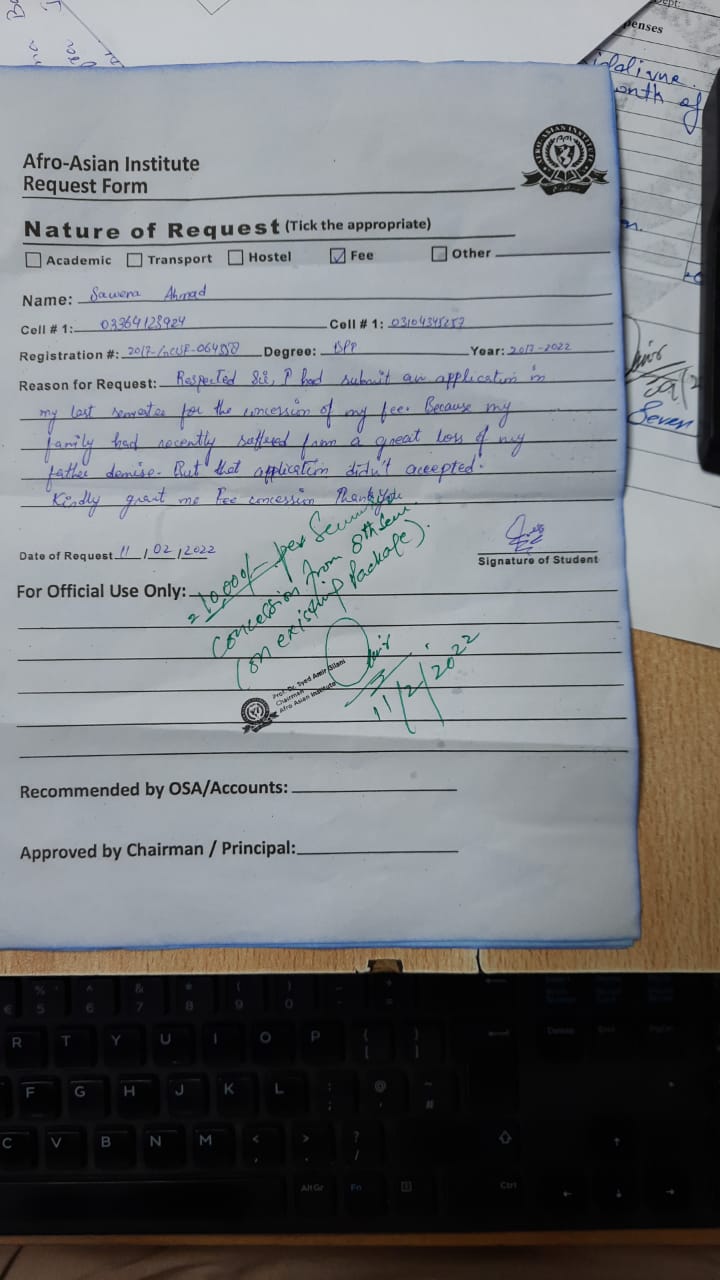 penses
onth of
Afro-Asian Institute
Request Form
AFRO-ASIAN INSTITUTE
Nature of Request (Tick the appropriate)
Academic Transport Hostel Fee Other
Name: Sawera Ahmad
Cell # 1: 03364123924 Cell # 1: 03104345257
Registration #: Degree: Year: 2017-2022
Reason for Request: Respected Sir, I had submit an application in
my last semester for the concession of my fee. Because my
family had recently suffered from a great loss of my
father demise. But that application didn't accepted.
Kindly grant me Fee concession Thank you
Date of Request 11/02/2022
Signature of Student
For Official Use Only:
10,000/- per
Concession from 8th Sem
(on existing Package).
11/2/2022
Prof. Dr. Syed Amir Gilani
Chairman
Afro Asian Institute
Recommended by OSA/Accounts:
Approved by Chairman / Principal:
Seven
% ^ & * ( ) - +
€ 5 6 7 8 9 0 - =
R T Y U I O P { }
[ ]
F G H J K L : @ ~
; ' #
C V B N M < > ?
, . /
Alt Gr Fn Ctrl